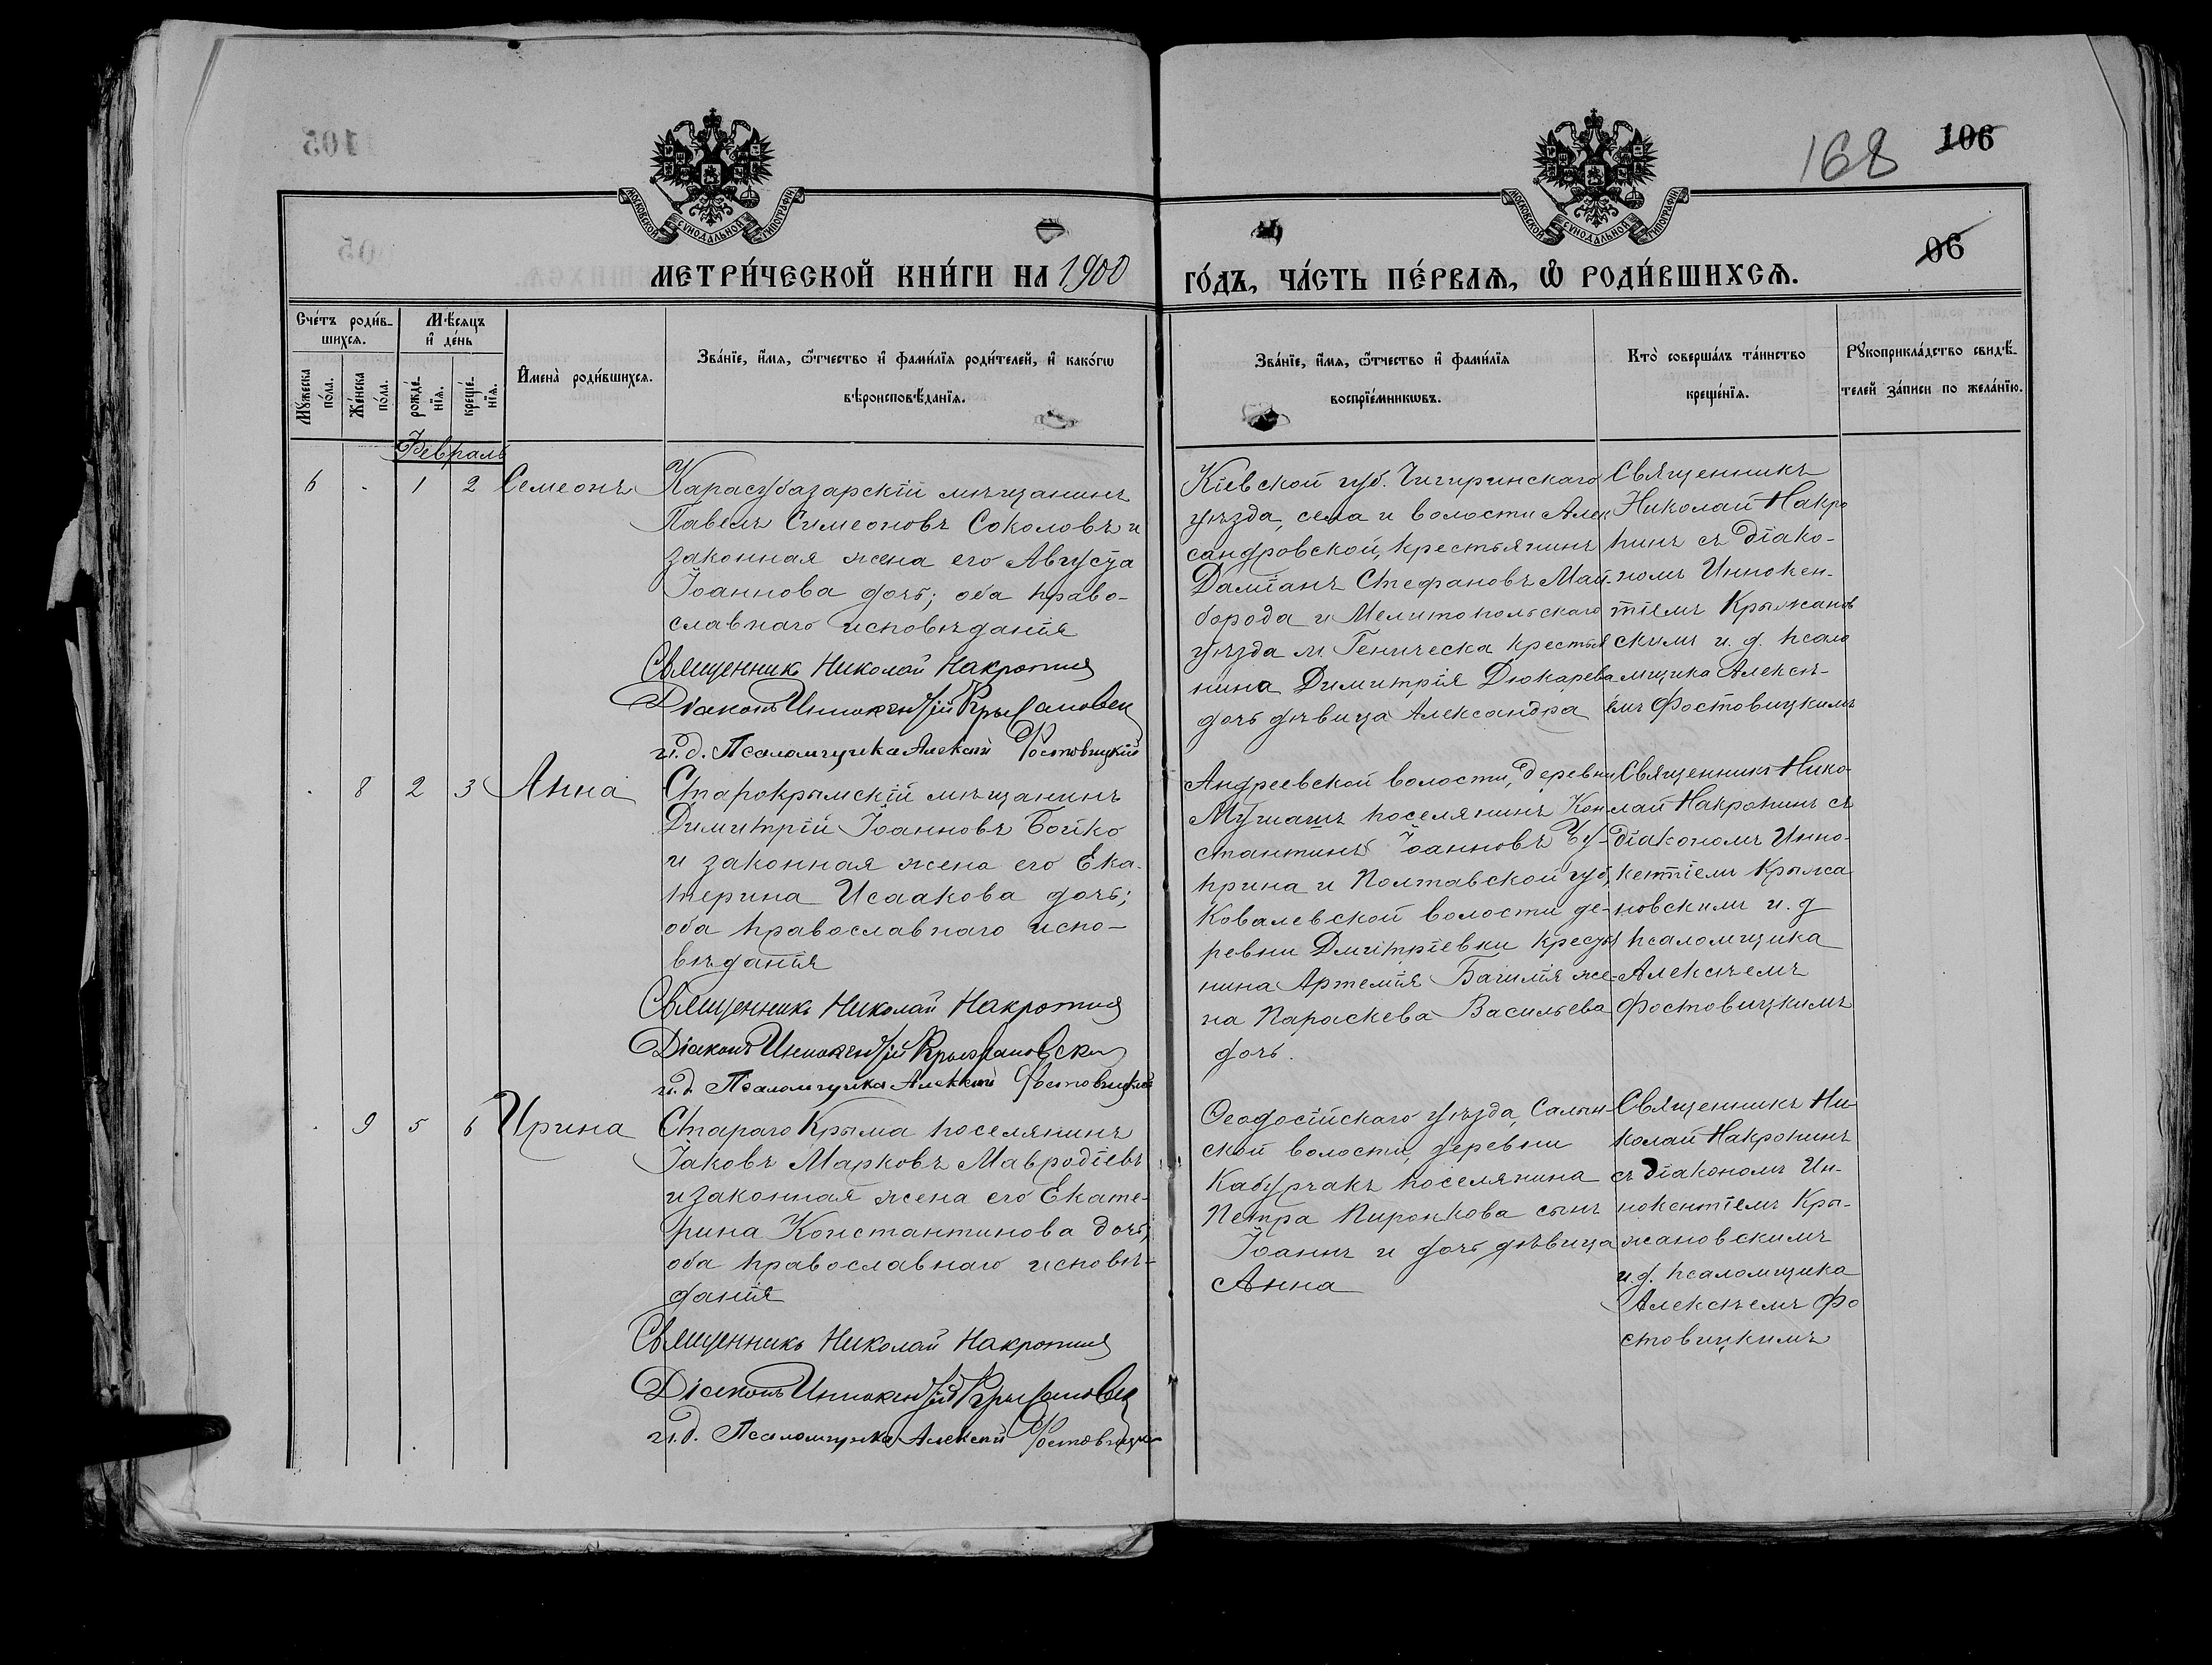 168
106
06
МОСКОВСКОЙ СѴНОДАЛЬНОЙ ТИПОГРАФІИ
МОСКОВСКОЙ СѴНОДАЛЬНОЙ ТИПОГРАФІИ
МЕТРИ́ЧЕСКОЙ КНИ́ГИ НА 1900
ГО́ДЪ, ЧА́СТЬ ПЕ́РВАѦ, Ѽ РОДИ́ВШИХСѦ.
Сче́тъ роди́в-
шихсѧ.
Мѣ́сяцъ
и҆ де́нь
Мꙋ́жеска
по́ла.
Же́нска
по́ла.
рожде́-
нїѧ.
креще́-
нїѧ.
И҆мена̀ роди́вшихсѧ.
Зва́нїе, и҆́мѧ, ѻ҆́тчество и҆ фами́лїѧ роди́телей, и҆ како́гѡ
вѣроисповѣ́данїѧ.
Зва́нїе, и҆́мѧ, ѻ҆́тчество и҆ фами́лїѧ
воспрїе́мникѡвъ.
Кто̀ соверша́лъ та́инство
креще́нїѧ.
Рꙋкоприкла́дство свидѣ́-
телей за́писи по жела́нїю.
Февраль
6 - 1 2 Семеонъ
Карасубазарскій мѣщанинъ
Павелъ Симеоновъ Соколовъ и
законная жена его Августа
Іоаннова дочь; оба право-
славнаго исповѣданія
Священникъ Николай Накропинъ
Діаконъ Иннокентій Крыжановск
и. д. Псаломщика Алексій Фостовицкій
Кіевской губ. Чигиринскаго
уѣзда, села и волости Алек
сандровской, крестьянинъ
Даміанъ Стефановъ Май-
борода и Мелитопольскаго
уѣзда м. Геническа крестья
нина Димитрія Дюкарева
дочь дѣвица Александра
Священникъ
Николай Накро
пинъ съ діако-
номъ Иннокен-
тіемъ Крыжанов
скимъ и. д. псало
мщика Алексѣ-
емъ Фостовицкимъ
. 8 2 3 Анна
Старокрымскій мѣщанинъ
Димитрій Іоанновъ Бойко
и законная жена его Ека-
терина Исаакова дочь;
оба православнаго испо-
вѣданія
Священникъ Николай Накропинъ
Діаконъ Иннокентій Крыжановски
и. д. Псаломщика Алексій Фостовицкій
Андреевской волости, деревни
поселянинъ Кон
стантинъ Іоанновъ Чу-
прина и Полтавской губ,
Ковалевской волости де-
ревни Дмитріевки крестья
нина Артемія же-
на Параскева Васильева
дочь.
Священникъ Нико
лай Накропинъ съ
діакономъ Инно-
кентіемъ Крыжа
новскимъ и. д
псаломщика
Алексѣемъ
Фостовицкимъ
. 9 5 6 Ирина
Стараго Крыма поселянинъ
Іаковъ Марковъ Мавродіевъ
и законная жена его Екате-
рина Константинова дочь;
оба православнаго исповѣ-
данія
Священникъ Николай Накропинъ
Діаконъ Иннокентій Крыжановск
и. д. Псаломщика Алексій Фостовицк
Ѳеодосійскаго уѣзда, Салын-
ской волости, деревни
Кабурчакъ поселянина
Петра Пиронкова сынъ
Іоаннъ и дочь дѣвица
Анна
Священникъ Ни-
колай Накропинъ
съ діакономъ Ин-
нокентіемъ Кры-
жановскимъ
и. д. псаломщика
Алексѣемъ Фо
стовицкимъ